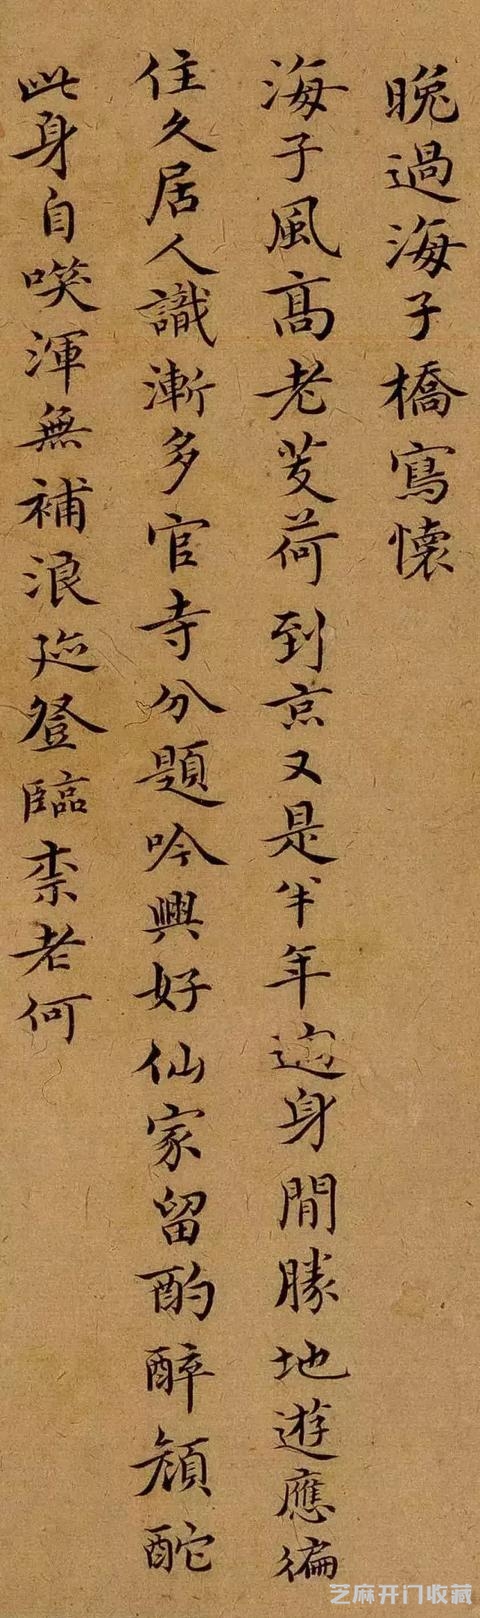 晚過海子橋寫懷
海子風高老芰荷到京又是半年過身閒勝地遊應徧
住久居人識漸多官寺分題吟興好仙家留酌醉顏酡
此身自嘆渾無補浪跡登臨柰老何
芝麻开门收藏